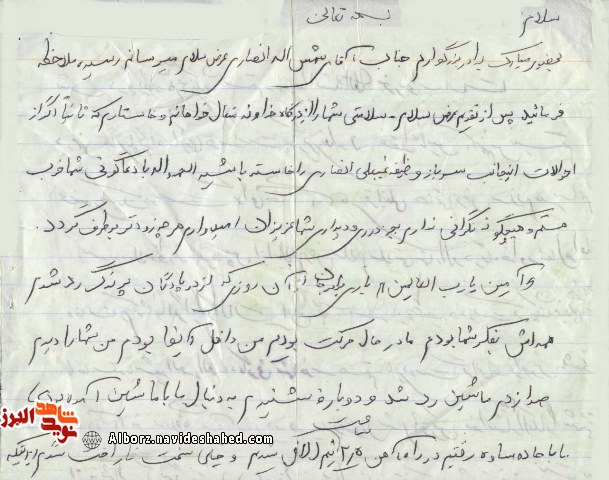 سلام بسمه تعالی
بحضور مبارک برادر بزرگوارم جناب آقای شمس اله انصاری عرض سلام میرسانم رسیده ملاحظه
فرمائید پس از تقدیم عرض سلام سلامتی شما را از درگاه خداوند متعال خواهانم و خواستارم که ثانیاً اگر از
احوالات اینجانب سرباز وظیفه علی انصاری را خواسته باشید الحمد الله با دعاگوئی شما خوب
هستم و هیچگونه نگرانی ندارم بجز دوری و دیداری شما عزیزان امیدوارم هر چه زودتر برطرف گردد.
آمین یارب العالمین باری برادرجان از آن روزی که از در پادگان پرندک رد شدم
همه اش بفکر شما بودم ما در حال حرکت بودیم من داخل ایفا بودم من شما را دیدم
صدا زدم ماشین رد شد و دوباره شنیدم به دنبال ما با ماشین آمده
با ما جاده ساوه رفتیم در راه آهن ساعت و خیلی سخت ناراحت شدم اینکه
شاهد
نوید
البرز
Alborz.navideshahed.com